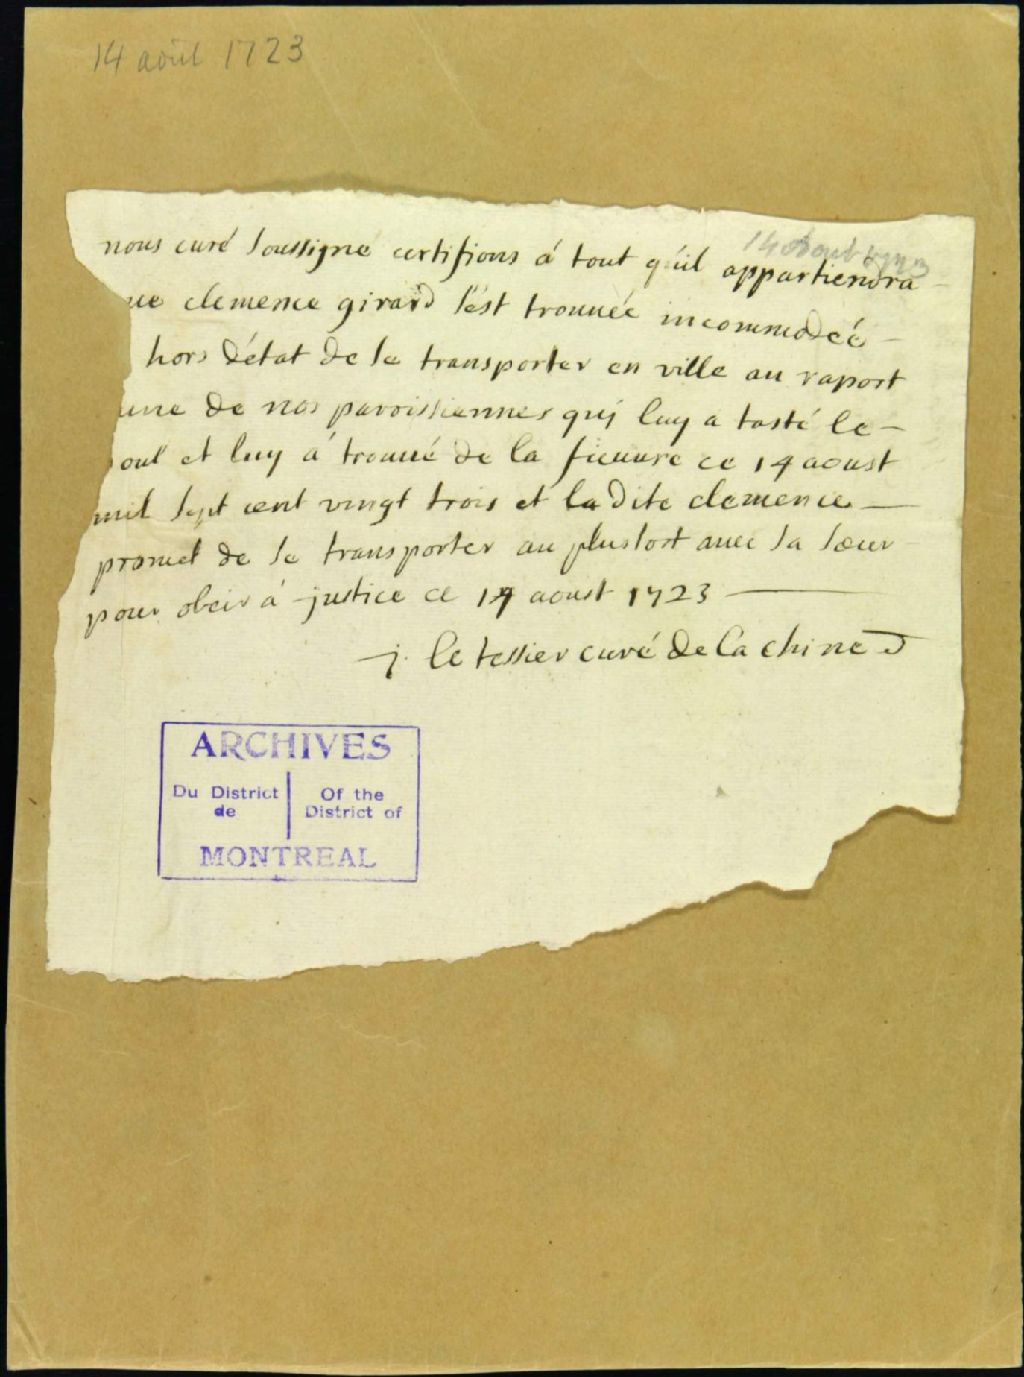 14 août 1723
14 aoust 1723
nous curé soussigné certifions á tout qu'il appartiendra
ue clemence girard s'est trouuée incommodée
hors d'état de se transporter en ville au raport
une de nos paroissiennes qui luy a tasté le
oul et luy á trouué de la fieuure ce 14 aoust
mil sept cent vingt trois et la dite clemence
promet de se transporter au plustost auec sa sœur
pour obeir á justice ce 14 aoust 1723
j. le tessier curé de la chine
ARCHIVES
Du District de
Of the District of
MONTREAL